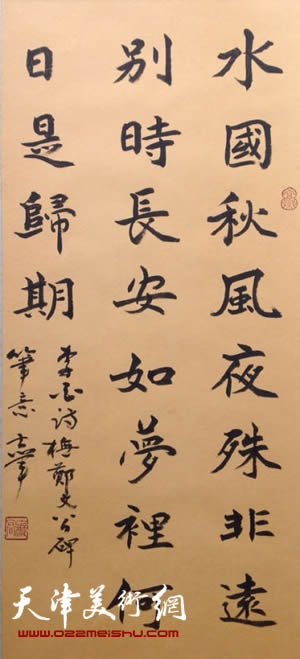 水國秋風夜殊非遠
別時長安如夢裡何
日是歸期
李白诗 鄭文公碑
筆意
天津美術網
www.022meishu.com